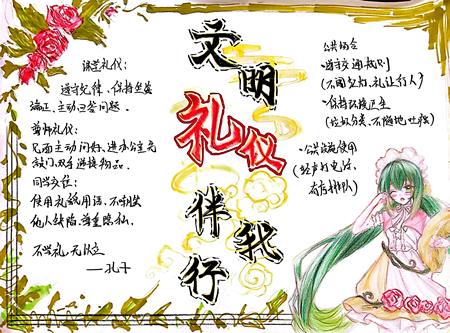 课堂礼仪:
遵守纪律、保持坐姿
端正、主动回答问题。
尊师礼仪:
见面主动问好、进办公室先
敲门、双手递接物品。
同学交往:
使用礼貌用语、不嘲笑
他人缺陷、尊重隐私。
不学礼,无以立
——孔子
文明
礼仪
伴我
行
公共场合
·遵守交通规则
(不闯红灯、礼让行人)
·保持环境卫生
(垃圾分类、不随地吐痰)
·公共设施使用
(轻声打电话、
有序排队)